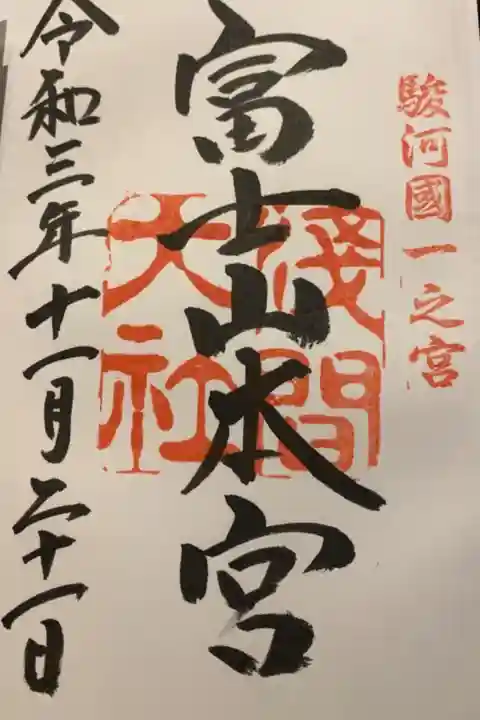 駿河國一之宮
富士山本宮
淺間
大社
令和三年十一月二十一日